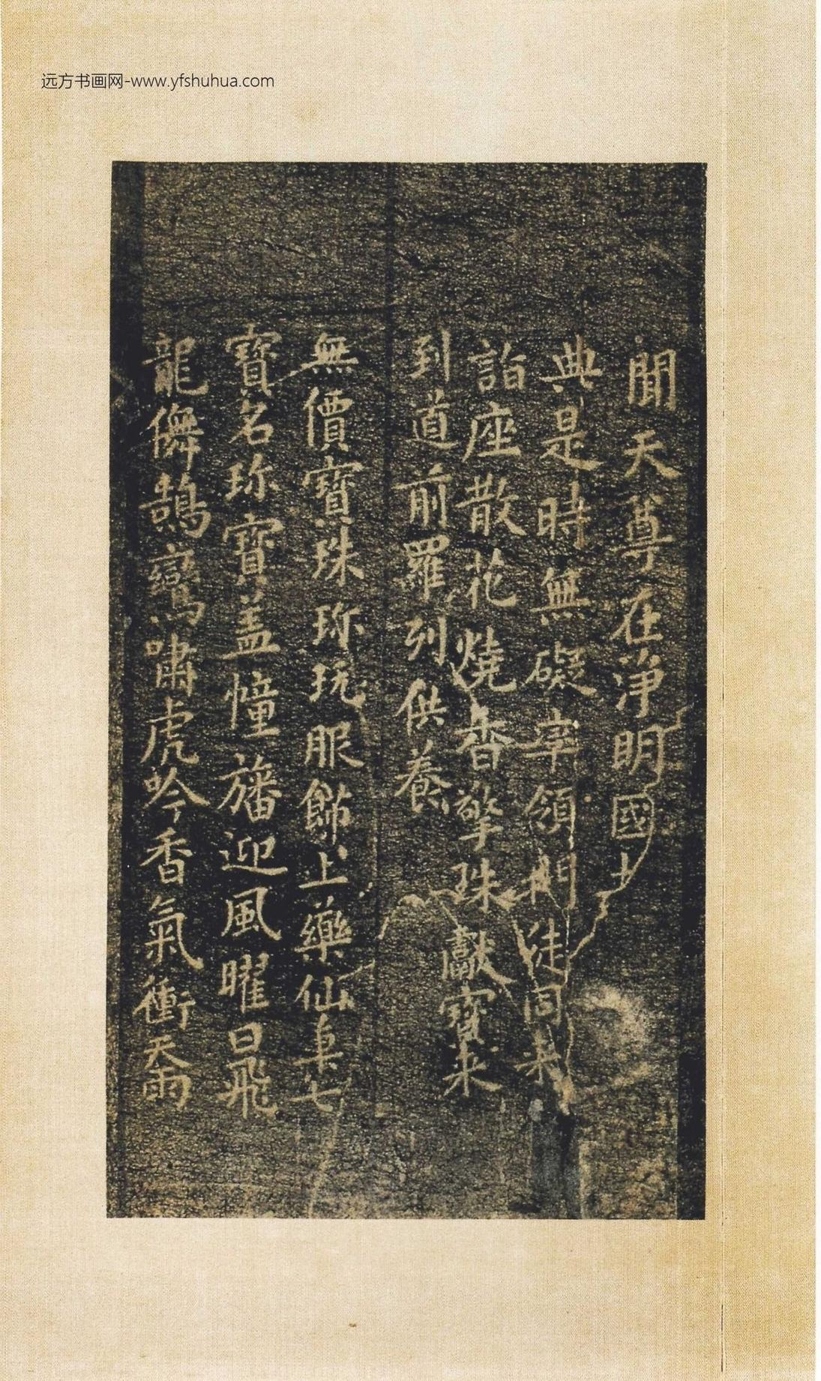 远方书画网-www.yfshuhua.com
聞天尊在淨明國土
典是時無礙率領門徒同来
詣座散花燒香擎珠獻寶来
到道前羅列供養
無價寶珠珎玩服飾上藥仙菓七
寶名珎寶盖幢旛迎風曜日飛
龍儛鵠鸞嘯虎吟香氣衝天雨